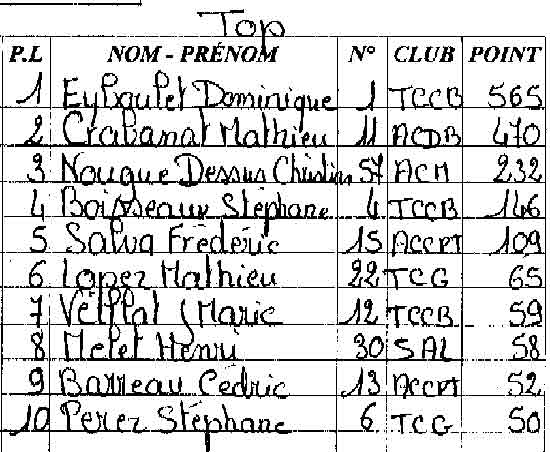 Top
P.L NOM - PRÉNOM N° CLUB POINT
1 Eyboulet Dominique 1 TCCB 565
2 Crabanat Mathieu 11 ACDB 470
3 Nougue Dessus Christian 57 ACM 232
4 Boisseaux Stéphane 4 TCCB 146
5 Salva Frédéric 15 ACCPT 109
6 Lopez Mathieu 22 TCG 65
7 Marie 12 TCCB 59
8 Melet Henri 30 SAL 58
9 Barreau Cédric 13 ACCPT 52
10 Perez Stéphane 6 TCG 50